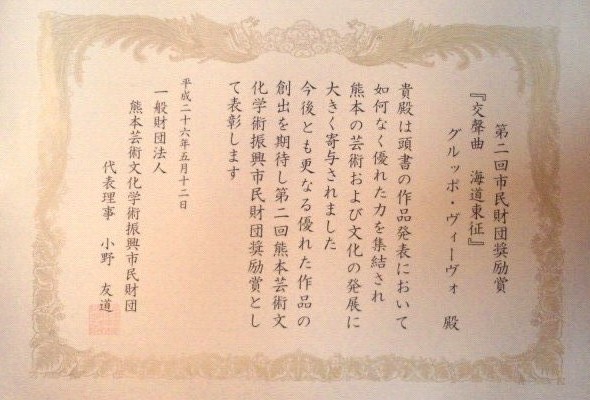 第二回市民財団奨励賞
『交聲曲　海道東征』
グルッポ・ヴィーヴォ　殿
貴殿は頭書の作品発表において
如何なく優れた力を集結され
熊本の芸術および文化の発展に
大きく寄与されました
今後とも更なる優れた作品の
創出を期待し第二回熊本芸術文
化学術振興市民財団奨励賞とし
て表彰します
平成二十六年五月十二日
一般財団法人
熊本芸術文化学術振興市民財団
代表理事　小野　友道